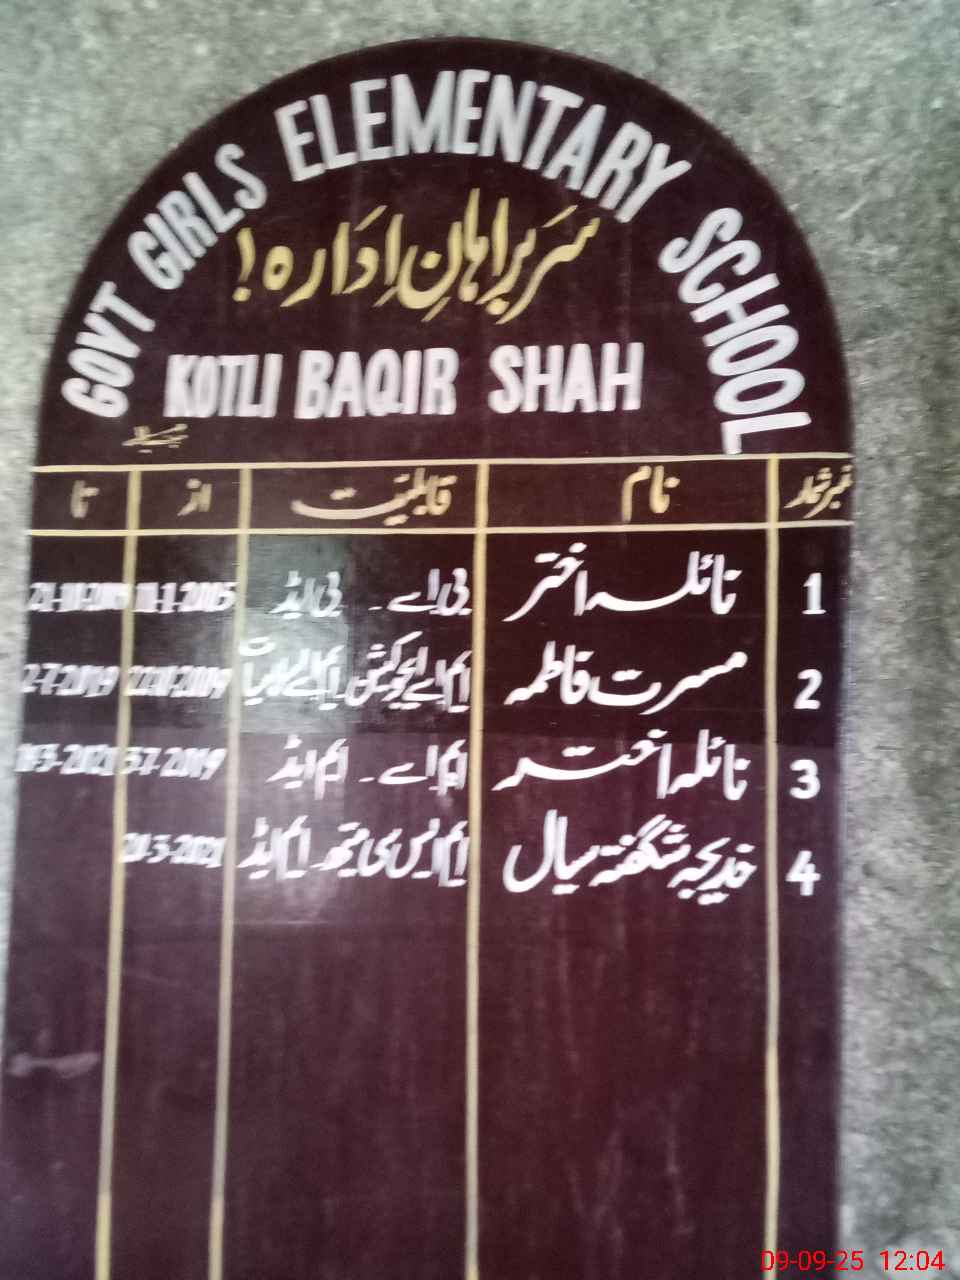 GOVT GIRLS ELEMENTARY SCHOOL
سربراہانِ اِدارہ !
KOTLI BAQIR SHAH
نمبر شمار نام قابلیت از تا
1 نائلہ اختر بی اے ۔ بی ایڈ
2 مسرت فاطمہ ایم اے ایجوکیشن ۔ ایم اے اسلامیات 2-7-2019
3 نائلہ اختر ایم اے ۔ ایم ایڈ 3-7-2019
4 خدیجہ شگفتہ سیال ایم ایس سی میتھ ۔ ایم ایڈ
09-09-25 12:04